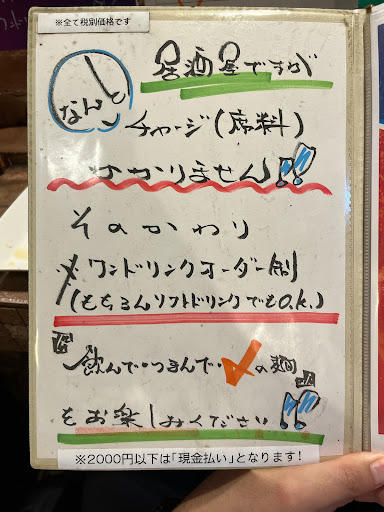 ※全て税別価格です
居酒屋ですが
なんと
チャージ(席料)
かかりません!!
そのかわり
ワンドリンクオーダー制
(もちろんソフトドリンクでもO.K.)
飲んで・つるんで・〆の麺
をお楽しみください!!
※2000円以下は「現金払い」となります!